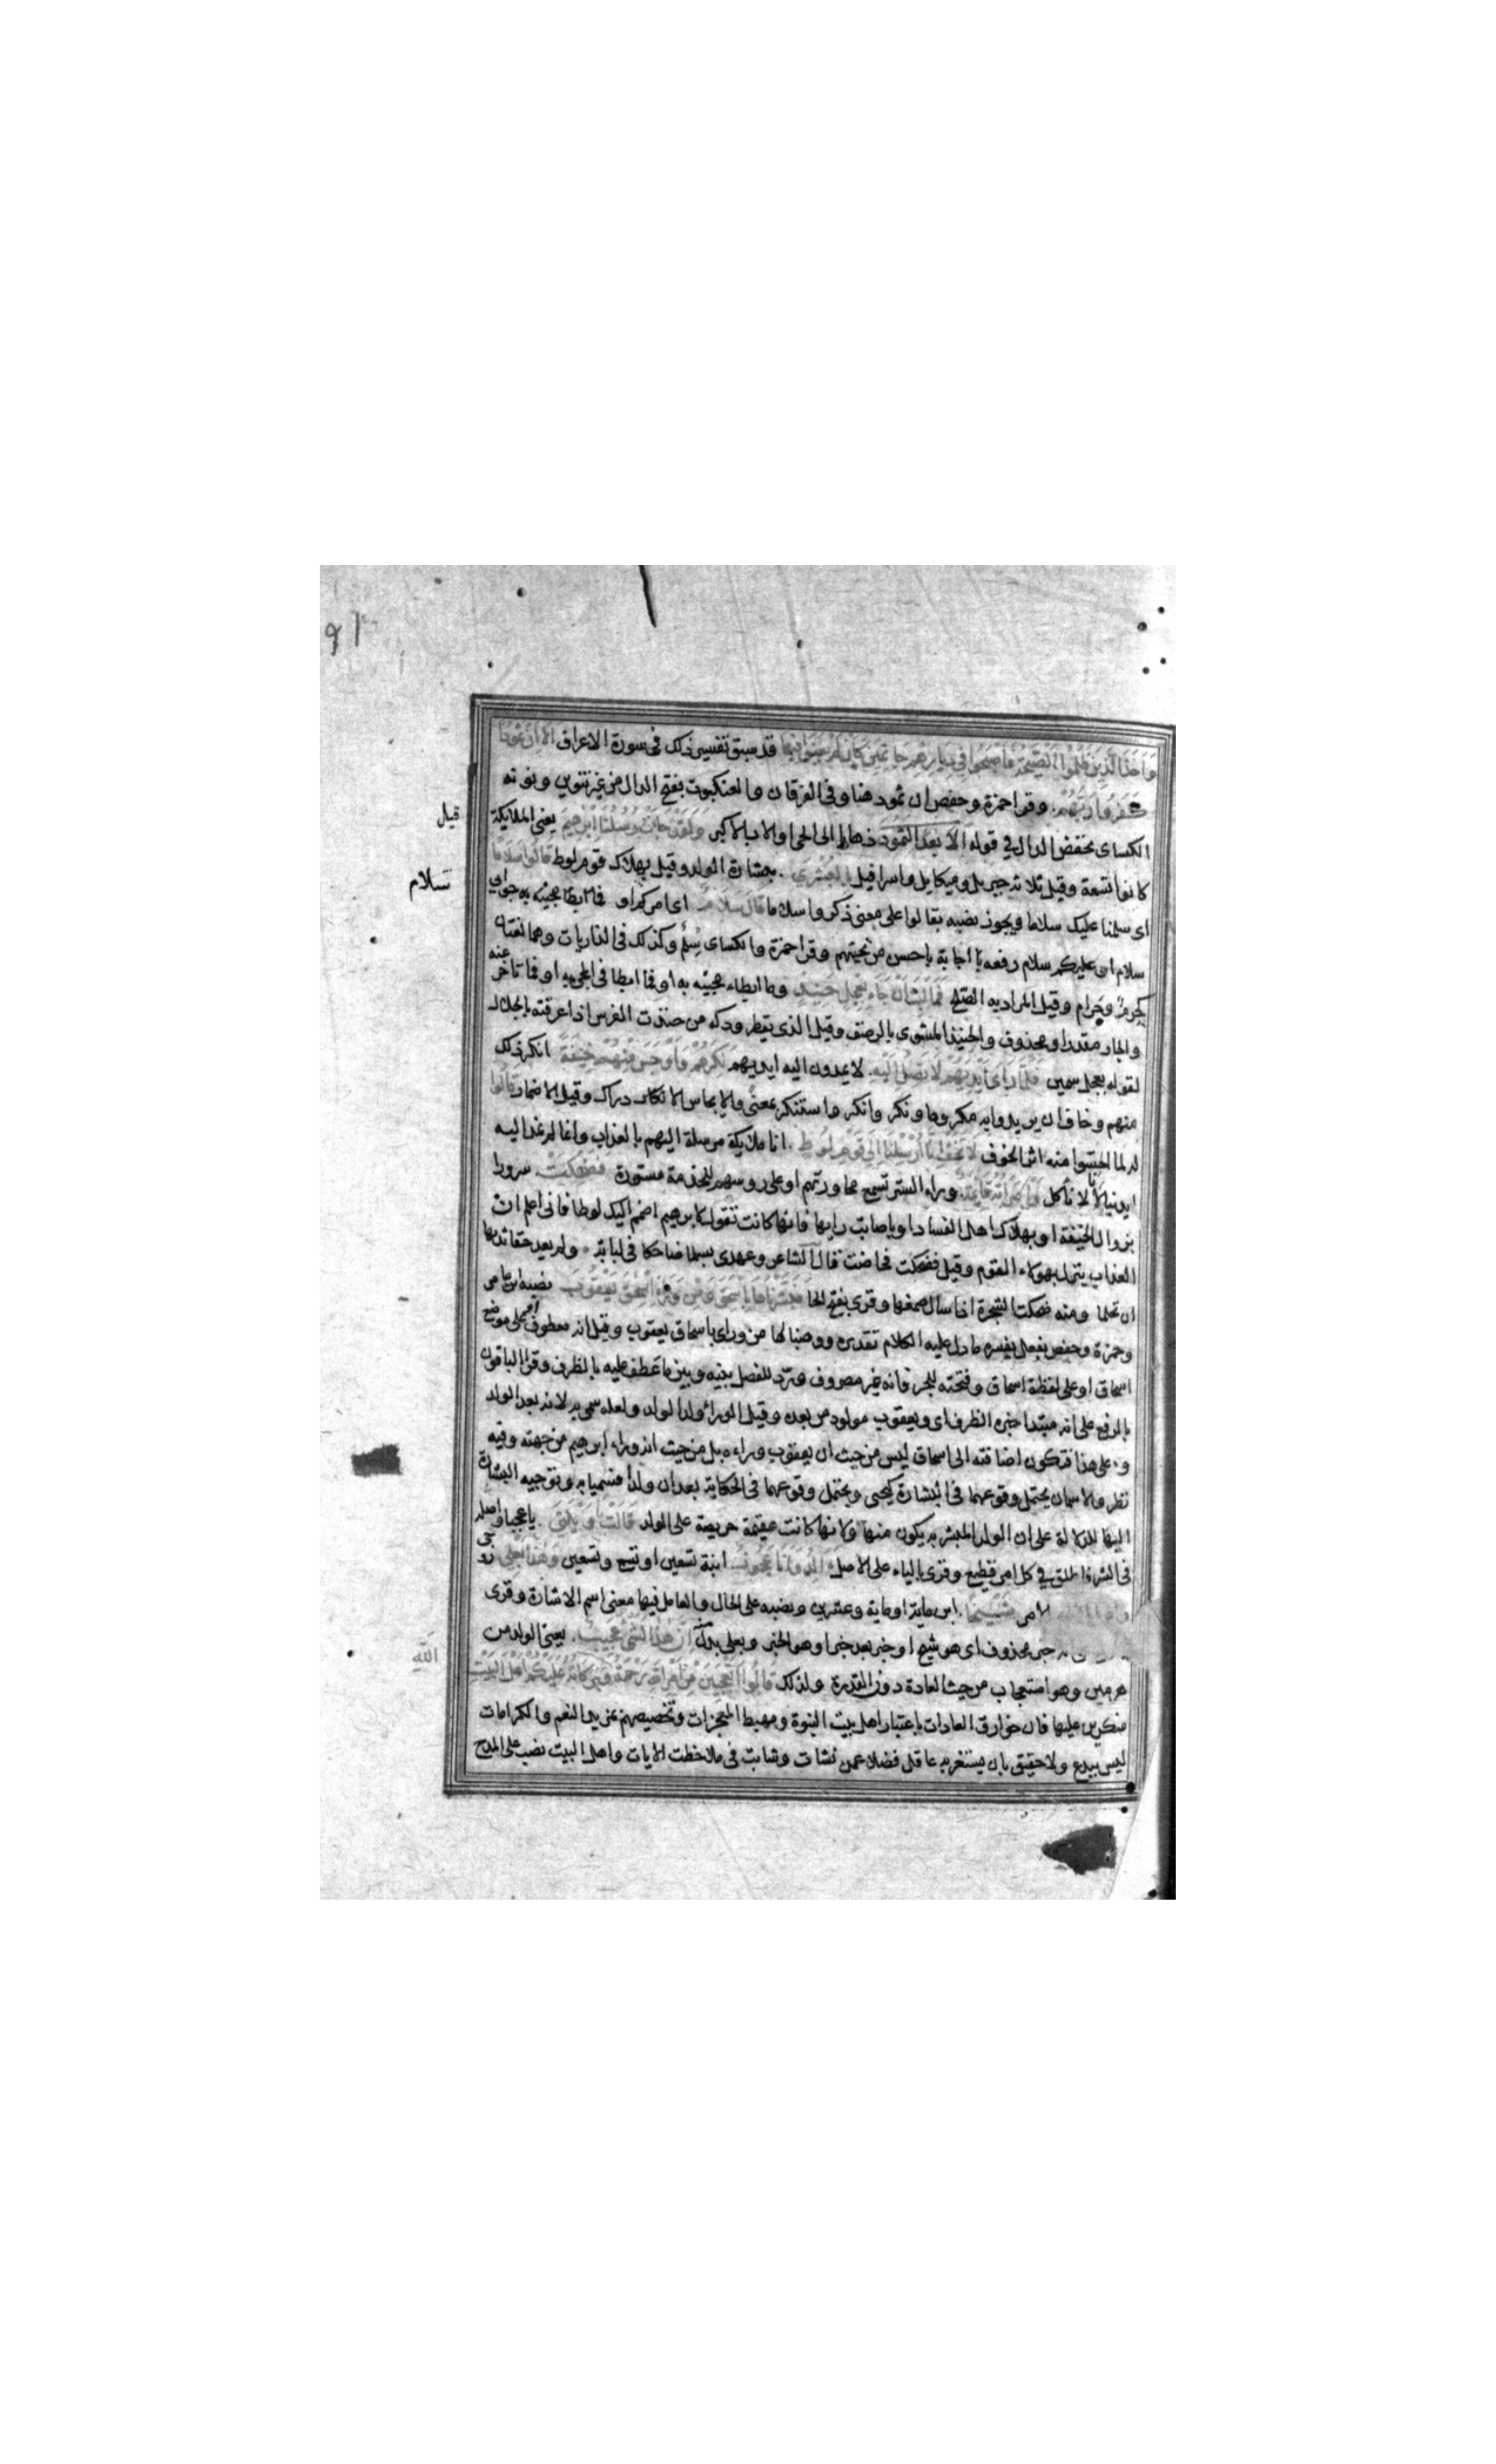 وَاَخَذَ الَّذِينَ ظَلَمُوا الصَّيْحَةُ فَاَصْبَحُوا فِي دِيَارِهِمْ جَاثِمِينَ كَاَنْ لَمْ يَغْنَوْا فِيهَا قد سبق تفسير ذلك فى سورة الاعراف اَلَا اِنَّ ثَمُودَا
كَفَرُوا رَبَّهُمْ وقرا حمزة وحفص ان ثمود هنا وفى الفرقان والعنكبوت بفتح الدال من غير تنوين ونونه
الكساى بخفض الدال في قوله اَلَا بُعْدًا لِثَمُودَ ذهابا الى الحى او الاب الاكبر وَلَقَدْ جَاءَتْ رُسُلُنَا اِبْرَاهِيمَ يعنى الملايكة
كانوا تسعة وقيل ثلاثة جبريل وميكايل واسرافيل بِالْبُشْرَى ببشارة الولد وقيل بهلاك قوم لوط قَالُوا سَلَامًا
اى سلمنا عليك سلاما ويجوز نصبه بقالوا على معنى ذكروا سلاما قَالَ سَلَامٌ اى امركم او جوابى
سلام اى عليكم سلام رفعه باجابة باحسن من تحيتهم وقرا حمزة والكساى سِلْمٌ وكذلك فى الذاريات وهما لغتان
كحرم وحرام وقيل المراد به الصلح فَمَا لَبِثَ اَنْ جَاءَ بِعِجْلٍ حَنِيذٍ وما ابطاء مجيئه به او فما ابطا فى المجى به او فما تاخر عنه
والجار مقدر او محذوف والحنيذ المشوى بالرضف وقيل الذى يقطر ودكه من حنذت الفرس اذا عرقته بالجلال
لقوله بعجل سمين فَلَمَّا رَاَى اَيْدِيَهُمْ لَا تَصِلُ اِلَيْهِ لا يمدون اليه ايديهم نَكِرَهُمْ وَاَوْجَسَ مِنْهُمْ خِيفَةً انكر ذلك
منهم وخاف ان يريدوا به مكروها ونكر وانكر واستنكر بمعنى والايجاس الادراك وقيل الاضمار قَالُوا
له لما احسوا منه اثر الخوف لَا تَخَفْ اِنَّا اُرْسِلْنَا اِلَى قَوْمِ لُوطٍ انا ملايكة مرسلة اليهم بالعذاب وانما لم نمد اليه
ايدينا لانا لا ناكل وَامْرَاَتُهُ قَائِمَةٌ وراء الستر تسمع محاورتهم او على روسهم للخدمة فَضَحِكَتْ سرورا
بزوال الخيفة او بهلاك اهل الفساد او باصابت رايها فانها كانت تقول لابرهيم اضمم اليك لوطا فانى اعلم ان
العذاب ينزل بهولاء القوم وقيل فضحكت فحاضت قال الشاعر وعهدى بسلمى ضاحكا فى لبابة ولم يعد حقا ثديها
ان تحلما ومنه ضحكت الشجرة اذا سال صمغها وقرى بفتح الحا فَبَشَّرْنَاهَا بِاِسْحَقَ وَمِنْ وَرَاءِ اِسْحَقَ يَعْقُوبَ نصبه ابن عامر
وحمزة وحفص بفعل يفسره ما دل عليه الكلام تقديره ووهبنا لها من وراى باسحاق يعقوب وقيل انه معطوف على موضع
اسحاق او على لفظة اسحاق وفتحته للجر فانه غير مصروف ورد للفصل بينه وبين ما عطف عليه بالظرف وقرا الباقون
بالرفع على انه مبتدا خبره الظرف اى ويعقوب مولود من بعده وقيل الوراء ولد الولد ولعله سمى به لانه بعد الولد
وعلى هذا فتكون اضافته الى اسحاق ليس من حيث ان يعقوب وراءه بل من حيث انه وراء ابرهيم من جهته وفيه
نظر والاسمان يحتمل وقوعهما فى البشارة كيحيى ويحتمل وقوعهما فى الحكاية بعد ان ولدا فسميا به وتوجيه البشارة
اليها للدلالة على ان الولد المبشر به يكون منها ولانها كانت عقيمة حريصة على الولد قَالَتْ يَا وَيْلَتَى يا عجبا واصله
فى الشر فاطلق في كل امر فظيع وقرى بالياء على الاصل ءَاَلِدُ وَاَنَا عَجُوزٌ ابنة تسعين او تسع وتسعين وَهَذَا بَعْلِي زوجى
الامر شَيْخًا ابن ماية او ماية وعشرين ونصبه على الحال والعامل فيها معنى اسم الاشارة وقرى
خبر محذوف اى هو شيخ او خبر بعد خبر او هو الخبر وبعلى بدل اِنَّ هَذَا لَشَىْءٌ عَجِيبٌ يعنى الولد من
هرمين وهو استعجاب من حيث العادة دون القدرة ولذلك قَالُوا اَتَعْجَبِينَ مِنْ اَمْرِ اللَّهِ رَحْمَةُ وَبَرَكَاتُهُ عَلَيْكُمْ اَهْلَ الْبَيْتِ
منكرين عليها فان خوارق العادات باعتبار اهل بيت النبوة ومهبط المعجزات وتخصيصهم بمزيد النعم والكرامات
ليس ببدع ولا حقيق بان يستغربه عاقل فضلا عمن نشات وشابت فى ملاحظت الايات واهل البيت نصب على المدح
قيل
سلام
الله